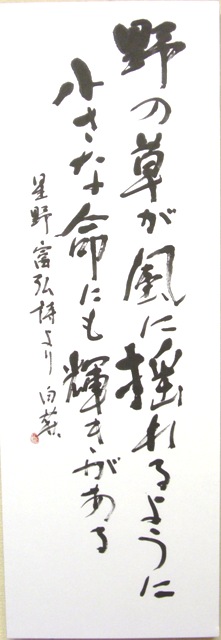 野の草が風に揺れるように
小さな命にも輝きがある
星野富弘詩より 白